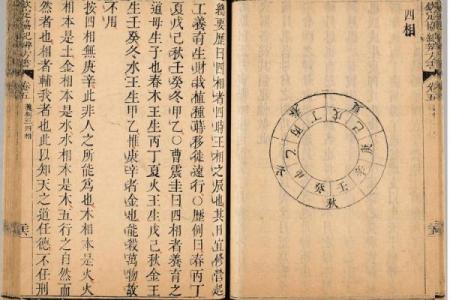 四相
夏
丙
丁
戊
己
庚
壬
癸
乙
秋
卷五
總要歷曰四相者四時王相之辰也其日宜修營起
工養育生財栽植種蒔移徙遠行○歷例曰春丙丁
夏戊己秋壬癸冬甲乙○曹震圭曰四相者養育之
道母生子也春木王生丙丁夏火王生戊己秋金王
生壬癸冬水王生甲乙惟庚辛者金也能殺萬物故
不用
按四相無庚辛此非人之所能爲也木相本是火火
相本是土金相本是水水相本是木五行之自然而
然者也相者輔我者也此以知天之道任德不任刑
卷五